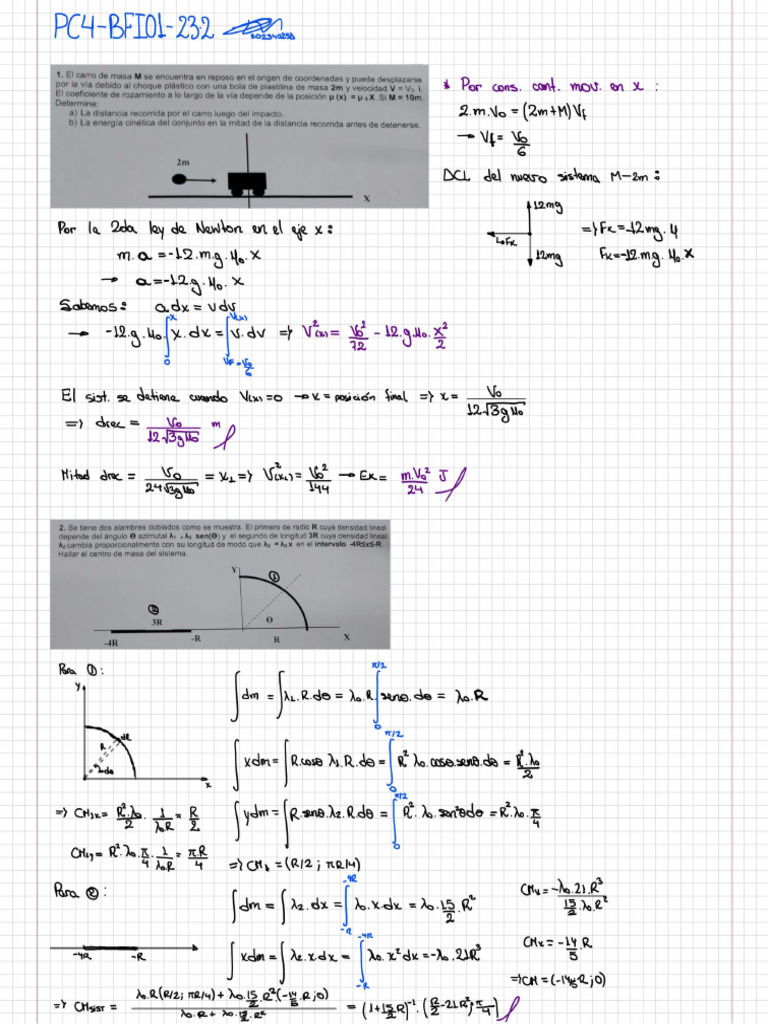 PC4-BFI01-232
1. El carro de masa M se encuentra en reposo en el origen de coordenadas y puede desplazarse
por la vía debido al choque plástico con una bola de plastilina de masa 2m y velocidad V = V₀ i.
El coeficiente de rozamiento a lo largo de la vía depende de la posición μ (x) = μ ₀ X .Si M = 10m.
Determine:
a) La distancia recorrida por el carro luego del impacto.
b) La energía cinética del conjunto en la mitad de la distancia recorrida antes de detenerse.
2m
X
* Por cons. cant. mov. en x :
2.m.V₀ = (2m+M)Vf
→ Vf = V₀/6
DCL del nuevo sistema M-2m:
12mg
Fx
12mg
=> Fx=-12mg.μ
Fx=-12.mg.μ₀.x
Por la 2da ley de Newton en el eje x:
m.a=-12.m.g.μ₀.x
→ a=-12.g.μ₀.x
Sabemos: a.dx = v.dv
→ -12.g.μ₀.∫₀ˣ x.dx = ∫_{Vf=V₀/6}^{V(x)} v.dv => V²(x) = V₀²/72 - 12.g.μ₀.x²/2
El sist. se detiene cuando V(x)=0 → x = posición final => x = V₀/(12√3gμ₀)
=> drec = V₀/(12√3gμ₀) m
Mitad drec = V₀/(24√3gμ₀) = x₁ => V²(x₁) = V₀²/144 → Ek = m.V₀²/24 J
2. Se tiene dos alambres doblados como se muestra. El primero de radio R cuya densidad lineal
depende del ángulo Θ azimutal λ₁ = λ₀ sen(Θ) y el segundo de longitud 3R cuya densidad lineal
λ₂ cambia proporcionalmente con su longitud de modo que λ₂ = λ₀ x en el intervalo -4R≤x≤-R.
Hallar el centro de masa del sistema.
Y
①
②
3R
Θ
-4R
-R
R
X
Para ①:
y
R
dR
dθ
x
∫dm = ∫λ₁.R.dθ = λ₀.R.∫₀^{π/2} senθ.dθ = λ₀.R
∫xdm = ∫R.cosθ.λ₁.R.dθ = ∫₀^{π/2} R².λ₀.cosθ.senθ.dθ = R².λ₀/2
=> CM₁x = R².λ₀/2 . 1/λ₀R = R/2
∫ydm = ∫R.senθ.λ₂.R.dθ = ∫₀^{π/2} R².λ₀.sen²θdθ = R².λ₀.π/4
CM₁y = R².λ₀.π/4 . 1/λ₀R = π.R/4
=> CM₁ = (R/2 ; πR/4)
Para ②:
∫dm = ∫λ₂.dx = ∫_{-R}^{-4R} λ₀.x.dx = λ₀.15/2.R²
CMx = -λ₀.21.R³/(15/2.λ₀.R²)
-4R
-R
∫xdm = ∫λ₂.x.dx = ∫_{-R}^{-4R} λ₀.x²dx = -λ₀.21R³
CMx = -14/5.R
=> CM = (-14/5R;0)
=> CMSIST = (λ₀.R(R/2; πR/4) + λ₀.15/2.R²(-14/5.R;0))/(λ₀.R + λ₀.15/2.R²) = (1+15/2R)⁻¹.(R/2-21R²; π/4)